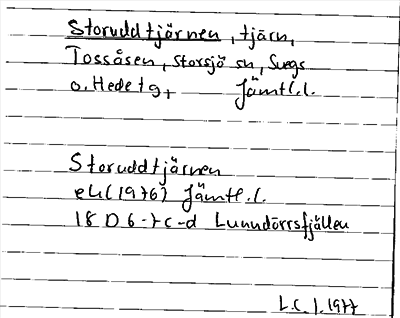 Storuddtjärnen, tjärn,
Tossåsen, Storsjö sn, Svegs
o. Hede tg, Jämtl.l.
Storuddtjärnen
ek (1976) Jämtl.l.
18 D 6-7 c-d Lunndörrsfjällen
L.C.J. 1977